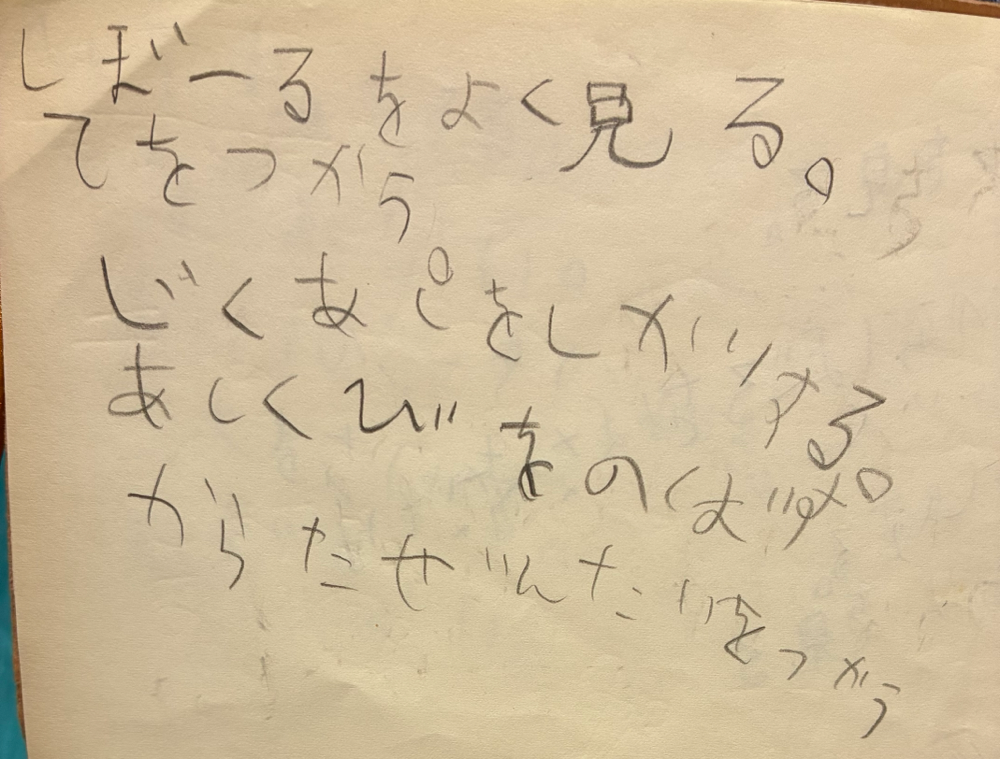 しぼーるをよく見る。
てをつかう。
じくあしを する
あしくびをのばす。
からたぜんたいをつかう